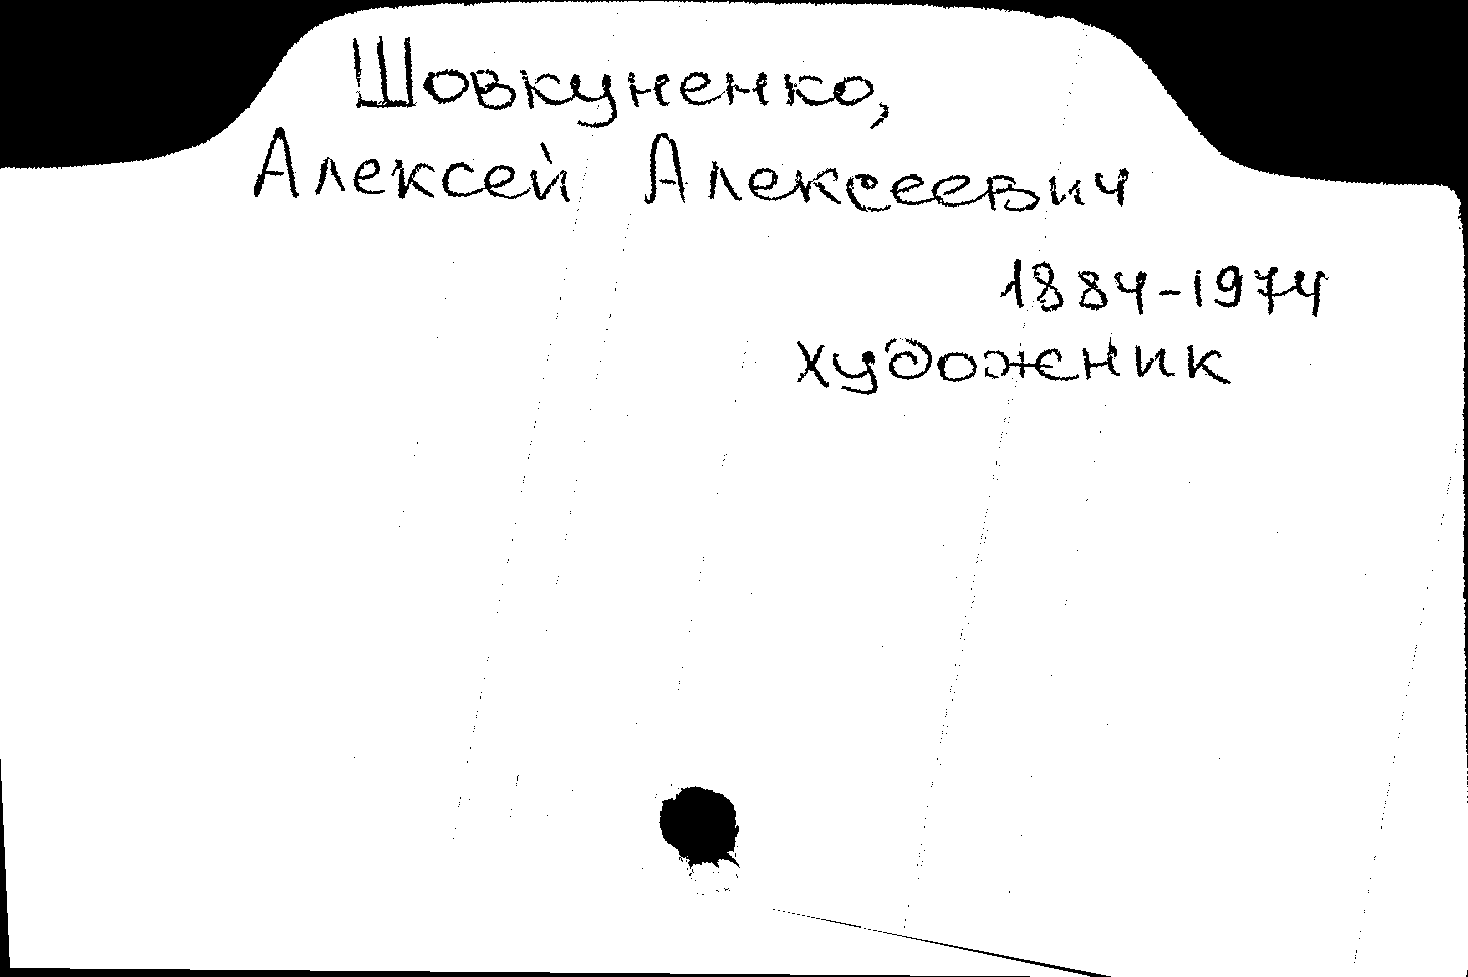 Шовкуненко,
Алексей Алексеевич
1884-1974
художник